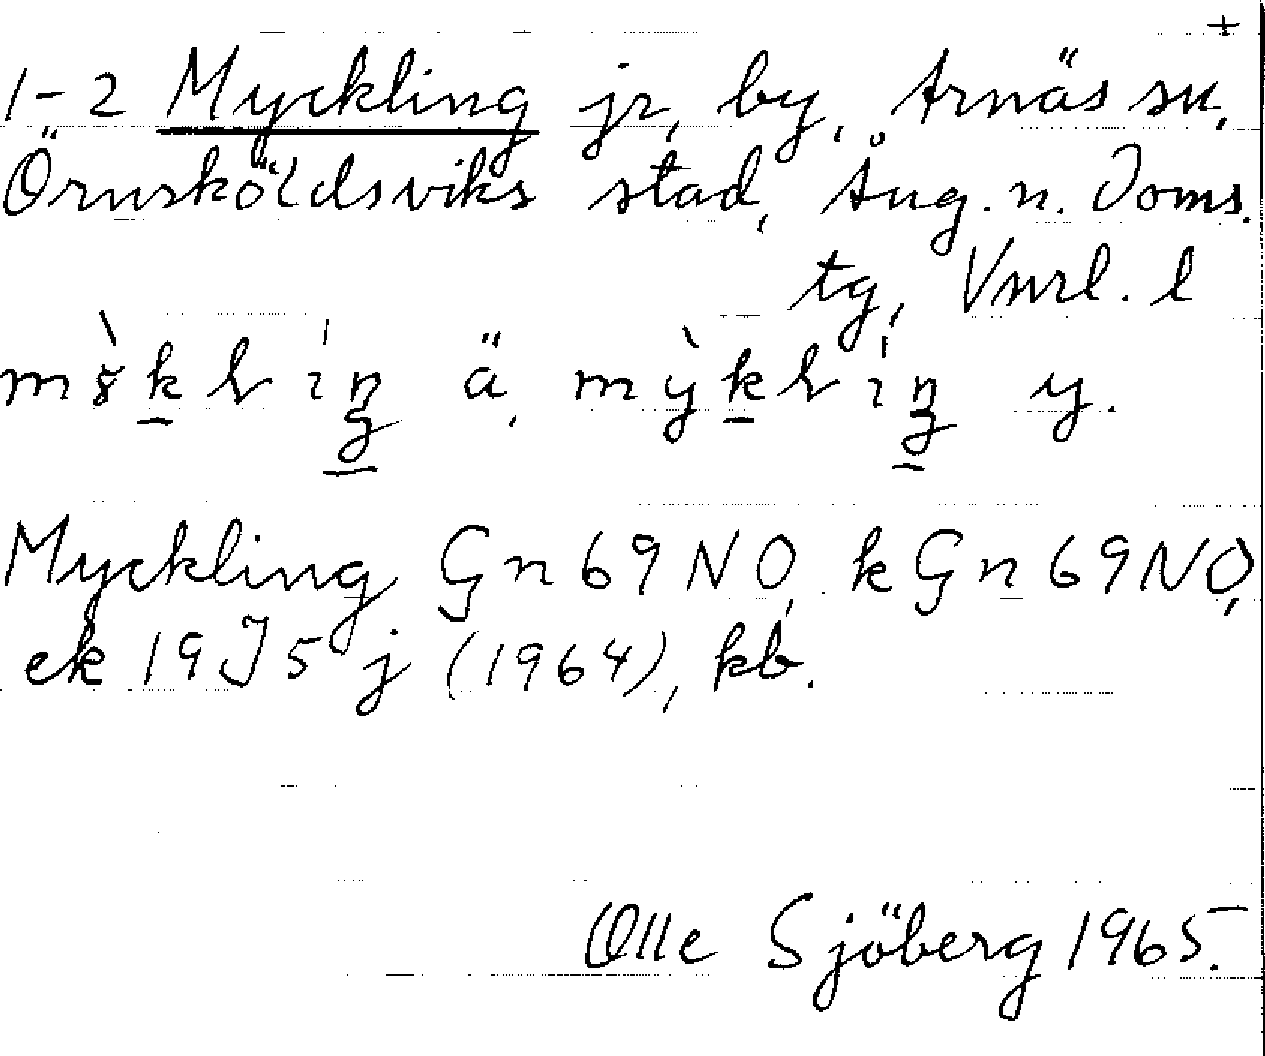 +
1-2 Myckling jr, by, Arnäs sn,
Örnsköldsviks stad, Ång. n. Doms.
tg, Vnrl. l
ä, y.
Myckling Gn 69 NO, k Gn 69 NO,
ek 19J5 j (1964), kb.
Olle Sjöberg 1965.